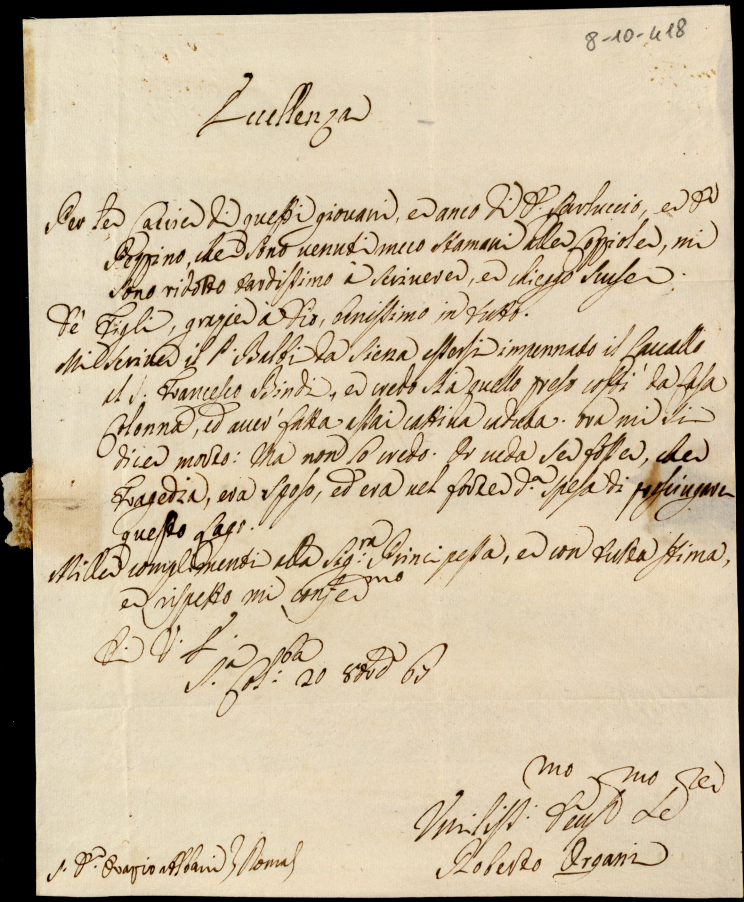 8-10-418
Eccellenza
Per la Caccia di questi giovani, ed anco di Dn. Carluccio, e Dn
Peppino, che sono venuti meco stamani alle Coppiole, mi
sono ridotto tardissimo à scrivere, e chiego scuse.
De' Figli, grazie à Dio, benissimo in tutto.
Mi scrive il P. Baldi da Siena essersi impennato il Cavallo
al S. Francesco Bindi, e credo sia quello preso costi da Casa
Colonna, ed aver' fatta assai cattiva caduta. ora mi si
dice morto: Ma non lo credo. Or veda se fosse, che
Tragedia, era sposo, ed era nel forte d.a spesa di prosciugare
questo Lago.
Mille complimenti alla Sig.ra Principessa, e con tutta stima,
e rispetto mi conf.mo
Di V. E.
S.a Col.ba 20 8bre 65
Umiliss.mo Devot.mo Se.re
Roberto Organi
S. Dn. Orazio Albani Roma